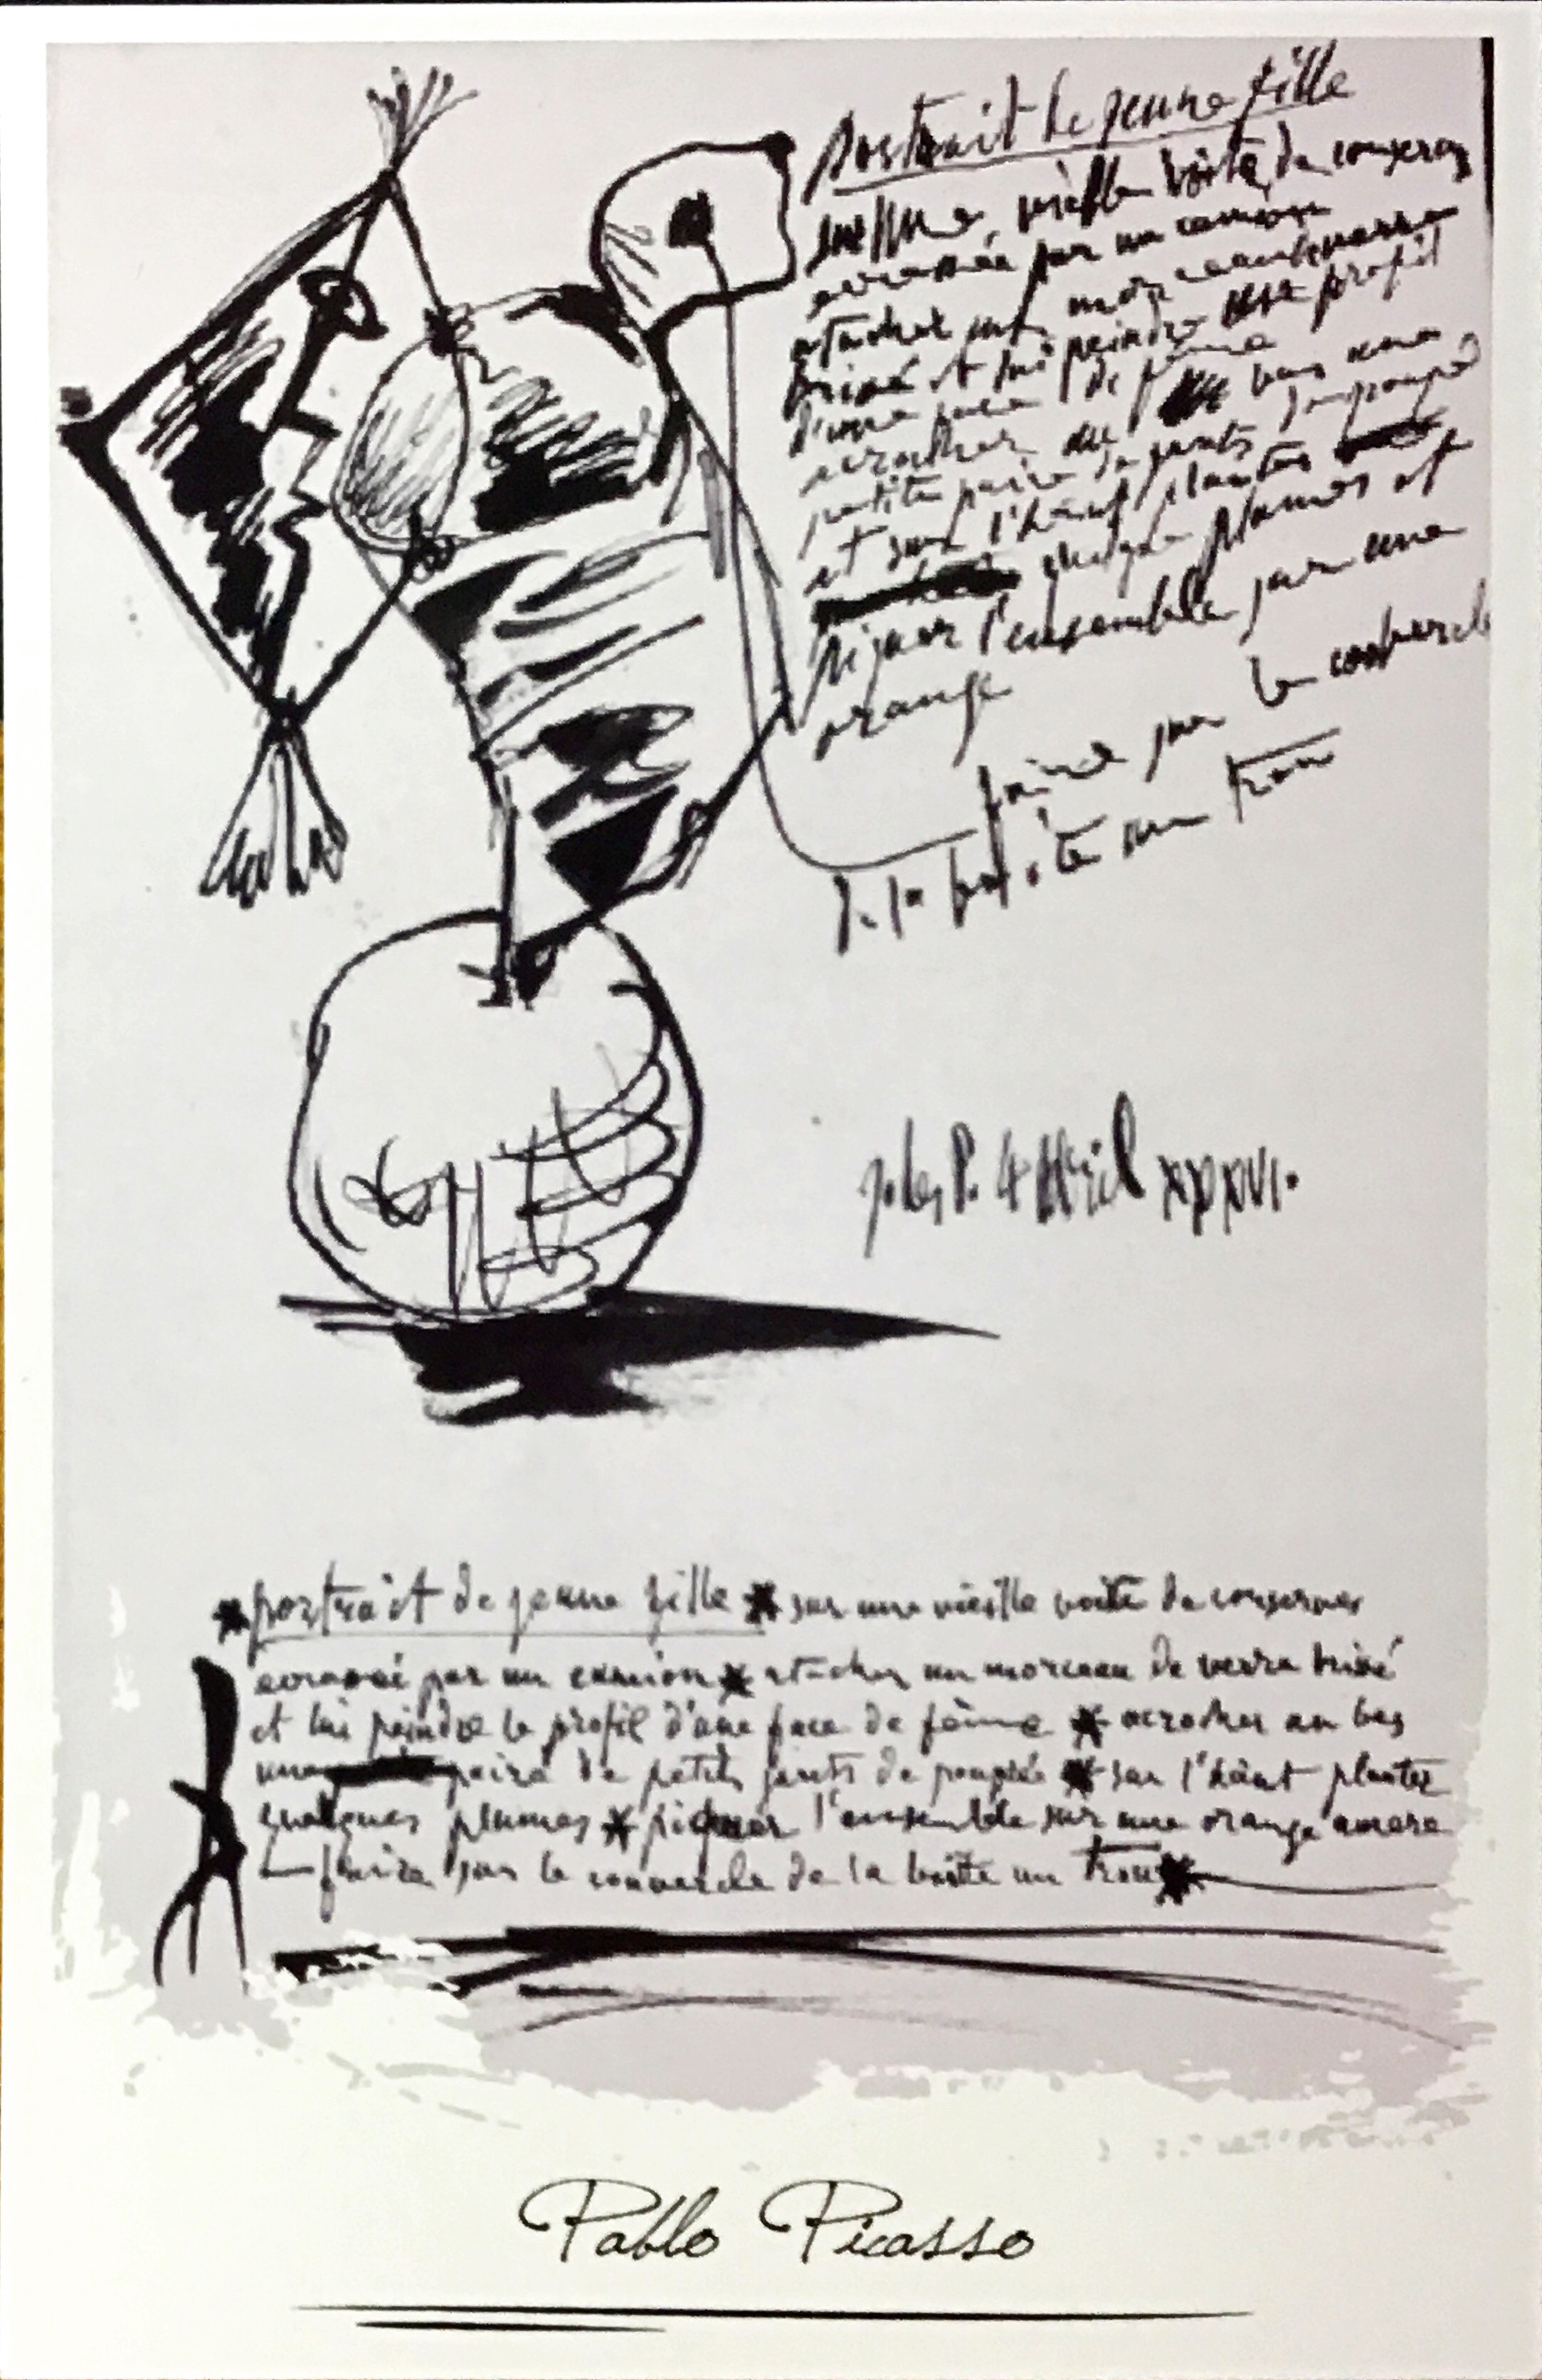 portrait de jeune fille
sur une vieille boite de conserves
écrasée par un camion
atacher un morceau de verre
brisé et lui peindre le profil
d'une face de féme
acrocher au bas une
petite paire de gants de poupé
et sur l'hàut plantér
quelques plumes et
piquer l'ensemble sur une
orange
faire sur le couvercle
de la boite un trou
P. 4 Avril XXXVI.
*portrait de jeune fille * sur une vieille boite de conserves
ecrassé par un camion * atacher un morceau de verre brisé
et lui peindre le profil d'une face de féme * acrocher au bas
une paire de petits gants de poupée * sur l'hàut planter
quelques plumes * piquer l'ensemble sur une orange amere
— faire sur le couvercle de la boite un trou * —
Pablo Picasso